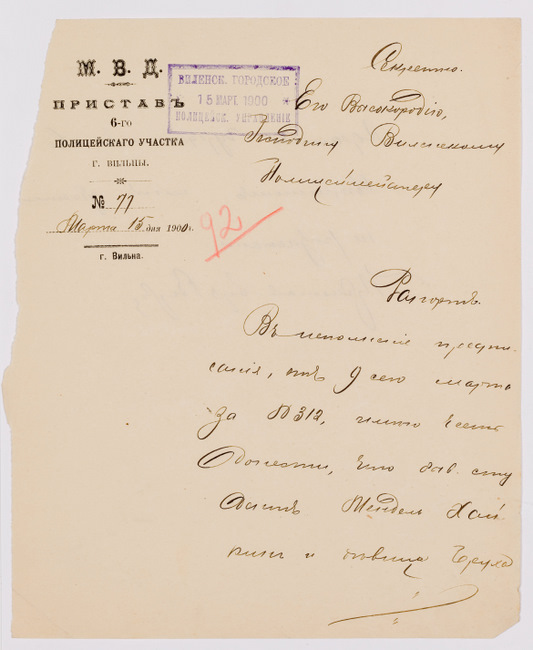 М. В. Д.
ПРИСТАВЪ
6-го
ПОЛИЦЕЙСКАГО УЧАСТКА
Г. ВИЛЬНЫ.
№ 77
Марта 15 дня 1900 г.
г. Вильна.
ВИЛЕНСК. ГОРОДСКОЕ
15 МАРТ 1900
ПОЛИЦЕЙСК. УПРАВЛЕНІЕ
92
Секретно.
Его Высокородію,
Господину Виленскому
Полицеймейстеру
Рапортъ.
Въ исполненіе предпи-
санія, отъ 9 сего марта
за № 312, имѣю честь
донести, что быв. сту
дентъ Мендель Хай
кинъ и девица